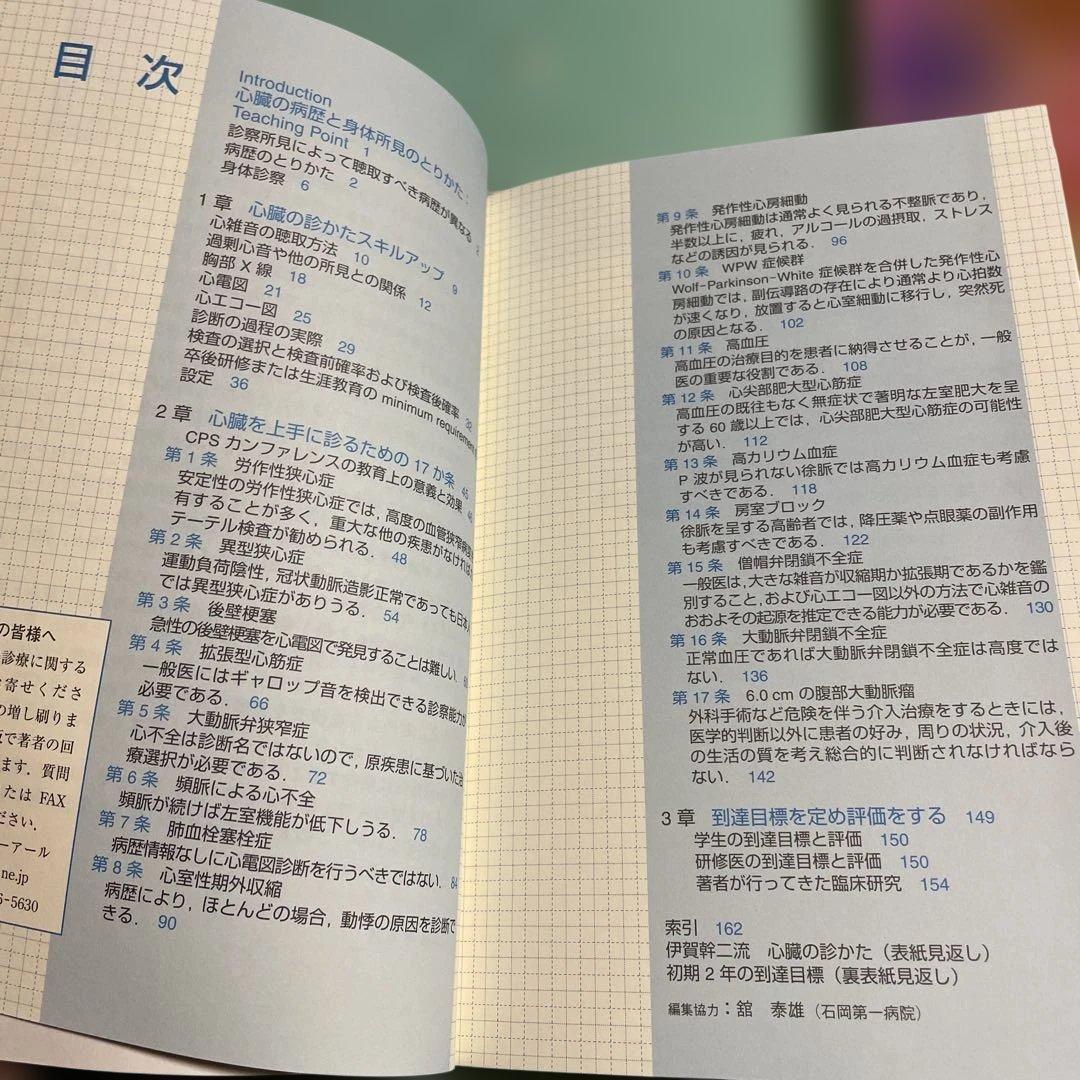 目 次
Introduction
心臓の病歴と身体所見のとりかた：
Teaching Point 1
診察所見によって聴取すべき病歴が異なる 2
病歴のとりかた 2
身体診察 6
1 章 心臓の診かたスキルアップ 9
心雑音の聴取方法 10
過剰心音や他の所見との関係 12
胸部 X 線 18
心電図 21
心エコー図 25
診断の過程の実際 29
検査の選択と検査前確率および検査後確率 32
卒後研修または生涯教育の minimum requirement
設定 36
2 章 心臓を上手に診るための 17 か条 45
CPS カンファレンスの教育上の意義と効果 46
第 1 条 労作性狭心症
安定性の労作性狭心症では，高度の血管狭窄病変
有することが多く，重大な他の疾患がなければ
テーテル検査が勧められる． 48
第 2 条 異型狭心症
運動負荷陰性，冠状動脈造影正常であっても日本人
では異型狭心症がありうる． 54
第 3 条 後壁梗塞
急性の後壁梗塞を心電図で発見することは難しい．
第 4 条 拡張型心筋症
一般医にはギャロップ音を検出できる診察能力が
必要である． 66
第 5 条 大動脈弁狭窄症
心不全は診断名ではないので，原疾患に基づいた治
療選択が必要である． 72
第 6 条 頻脈による心不全
頻脈が続けば左室機能が低下しうる． 78
第 7 条 肺血栓塞栓症
病歴情報なしに心電図診断を行うべきではない． 84
第 8 条 心室性期外収縮
病歴により，ほとんどの場合，動悸の原因を診断で
きる． 90
の皆様へ
診療に関する
寄せくださ
の増し刷りま
で著者の回
ます．質問
たは FAX
ださい．
ーアール
ne.jp
6-5630
第 9 条 発作性心房細動
発作性心房細動は通常よく見られる不整脈であり，
半数以上に，疲れ，アルコールの過摂取，ストレス
などの誘因が見られる． 96
第 10 条 WPW 症候群
Wolf-Parkinson-White 症候群を合併した発作性心
房細動では，副伝導路の存在により通常より心拍数
が速くなり，放置すると心室細動に移行し，突然死
の原因となる． 102
第 11 条 高血圧
高血圧の治療目的を患者に納得させることが，一般
医の重要な役割である． 108
第 12 条 心尖部肥大型心筋症
高血圧の既往もなく無症状で著明な左室肥大を呈
する 60 歳以上では，心尖部肥大型心筋症の可能性
が高い． 112
第 13 条 高カリウム血症
P 波が見られない徐脈では高カリウム血症も考慮
すべきである． 118
第 14 条 房室ブロック
徐脈を呈する高齢者では，降圧薬や点眼薬の副作用
も考慮すべきである． 122
第 15 条 僧帽弁閉鎖不全症
一般医は，大きな雑音が収縮期か拡張期であるかを鑑
別すること，および心エコー図以外の方法で心雑音の
おおよその起源を推定できる能力が必要である． 130
第 16 条 大動脈弁閉鎖不全症
正常血圧であれば大動脈弁閉鎖不全症は高度では
ない． 136
第 17 条 6.0 cm の腹部大動脈瘤
外科手術など危険を伴う介入治療をするときには，
医学的判断以外に患者の好み，周りの状況，介入後
の生活の質を考え総合的に判断されなければなら
ない． 142
3 章 到達目標を定め評価をする 149
学生の到達目標と評価 150
研修医の到達目標と評価 150
著者が行ってきた臨床研究 154
索引 162
伊賀幹二流 心臓の診かた（表紙見返し）
初期 2 年の到達目標（裏表紙見返し）
編集協力：舘 泰雄（石岡第一病院）